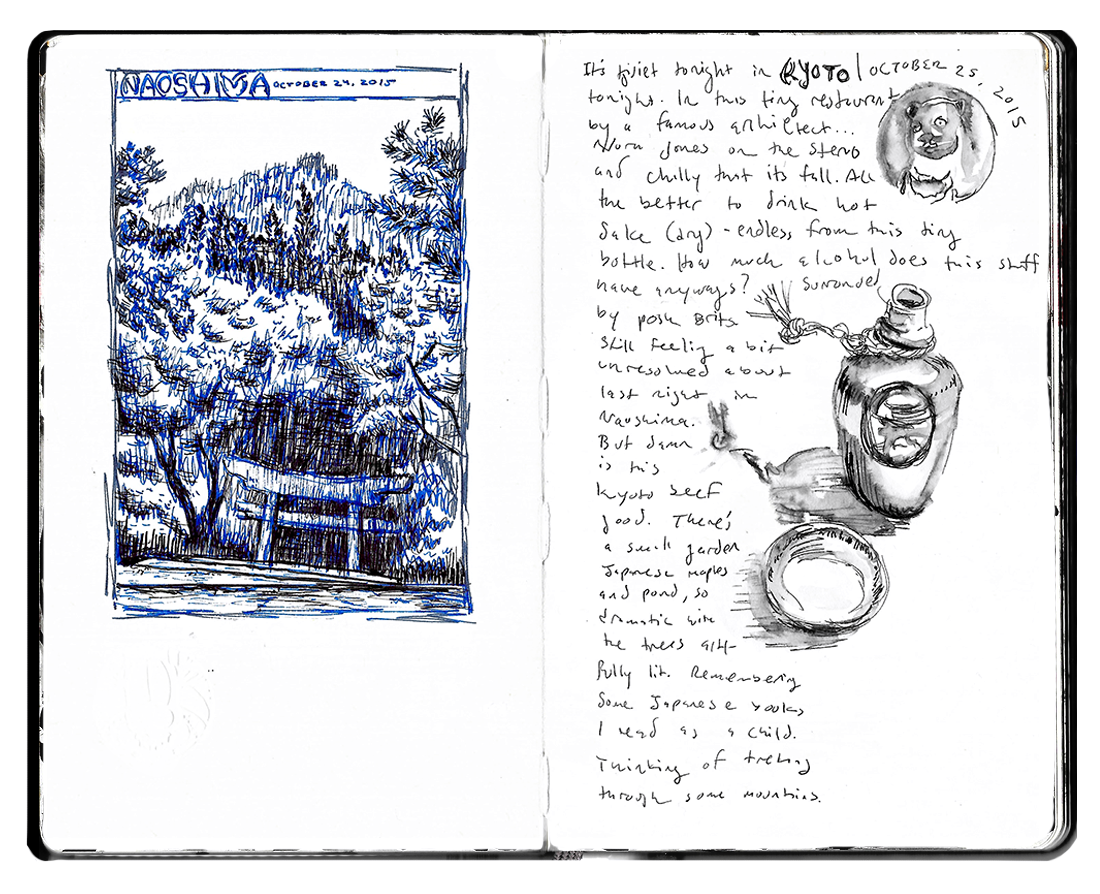 NAOSHIMA OCTOBER 24, 2015
It's quiet tonight in KYOTO | OCTOBER 25, 2015
tonight. In this tiny restaurant
by a famous architect...
Nora Jones on the stereo
and chilly that its fall. All
the better to drink hot
Sake (dry) - endless from this tiny
bottle. How much alcohol does this stuff
have anyways? Surrounded
by posh Brits
Still feeling a bit
unresolved about
last night in
Naoshima.
But damn
is this
Kyoto beef
good. There's
a small garden
Japanese maples
and pond, so
dramatic with
the trees art-
fully lit. Remembering
some Japanese books
I read as a child.
Thinking of treking
through some mountains.